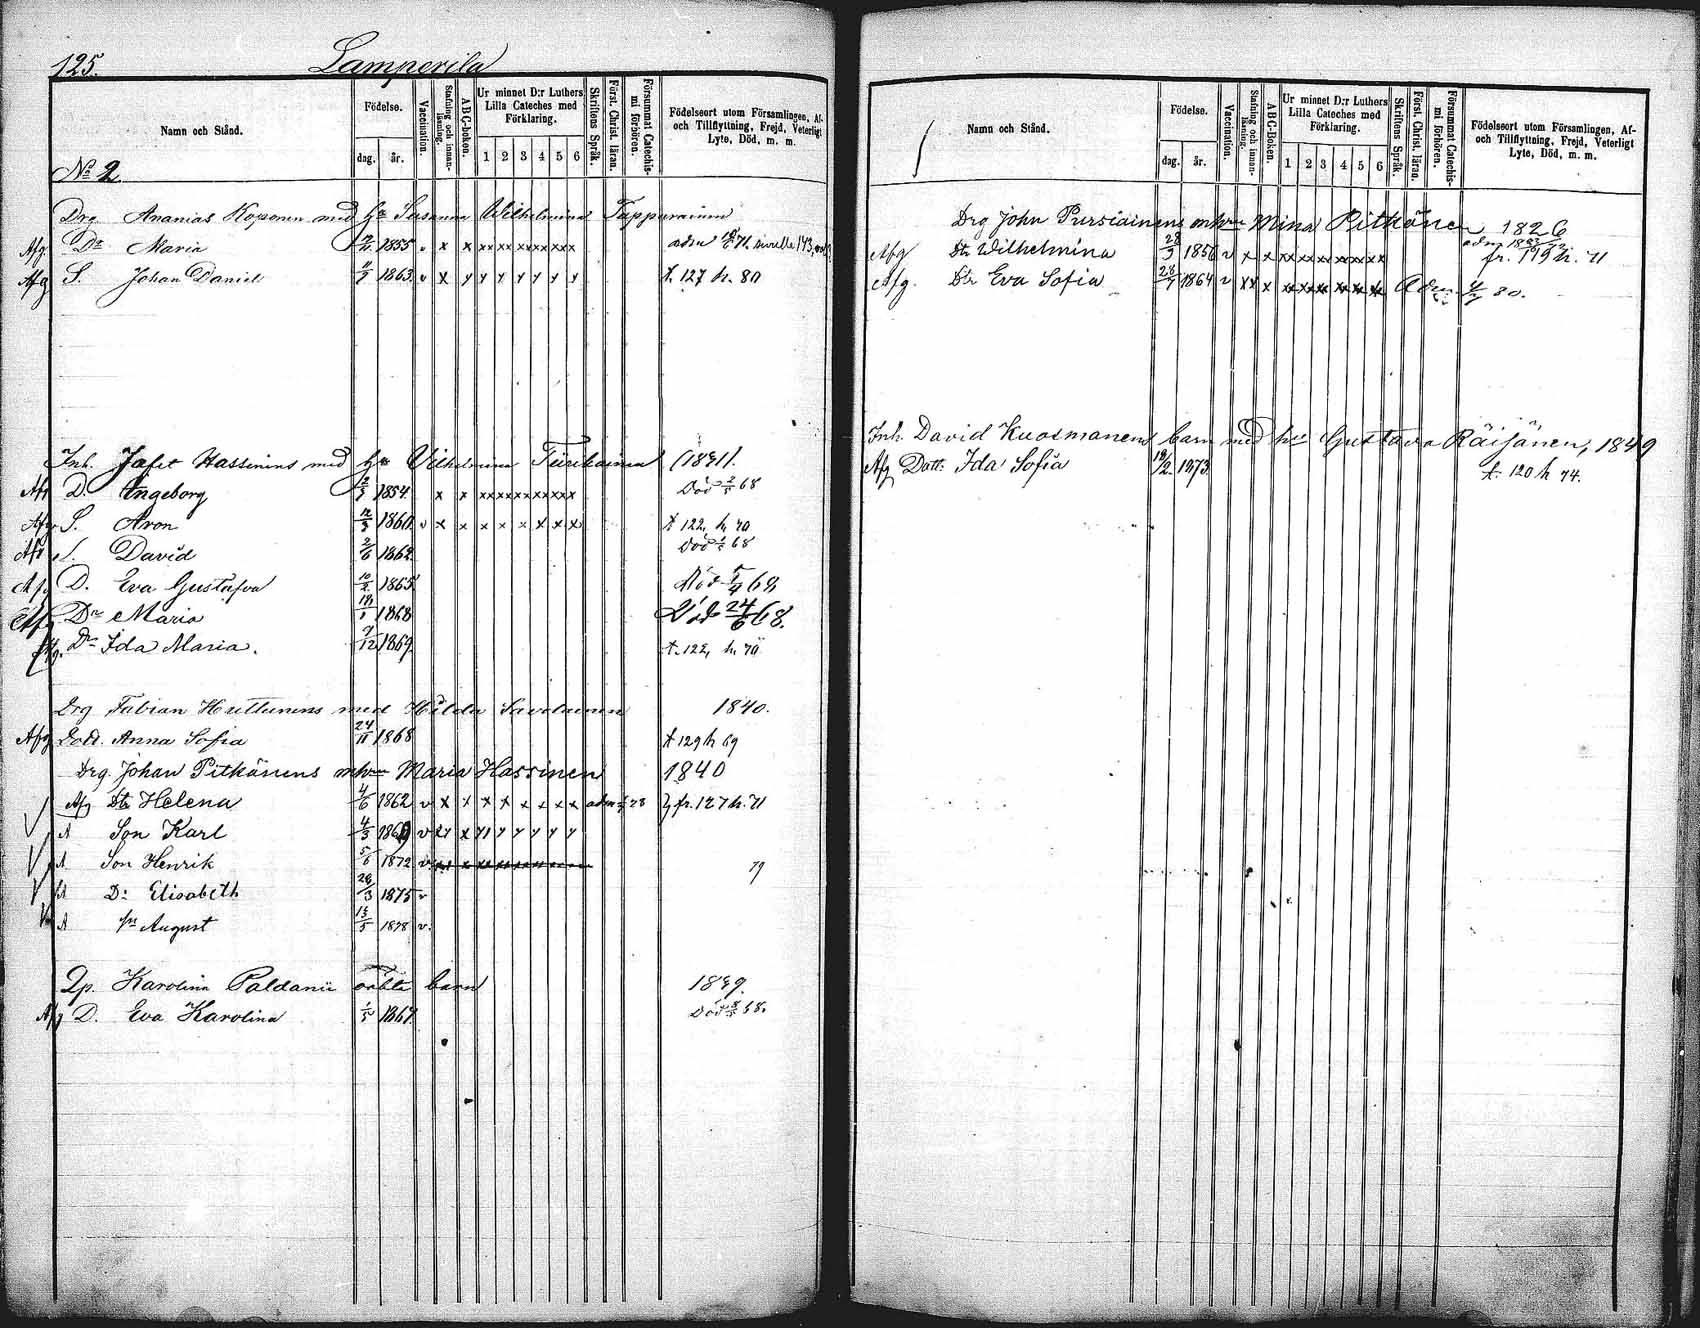 125.
Lamperila
Namn och Stånd.
Födelse.
dag. år.
Vaccination.
Stafning och innanläsning.
ABC-boken.
Ur minnet D:r Luthers Lilla Cateches med Förklaring.
1 2 3 4 5 6
Skriftens Språk.
Först. Christ. läran.
Försummat Catechismi förhören.
Födelseort utom Församlingen, Af- och Tillflyttning, Frejd, Veterligt Lyte, Död, m. m.
No 2
Drg Ananias Koponen med hu Susanna Wilhelmina Tappurainen
Afg. Dr Maria 1855 x x xx xx xx xx xx
Afg S. Johan Daniel 1863 v x y y y y y y y t. 127 h. 80
Inh. Jafet Hassinens med hu Vilhelmina Tiirikainen (1831).
Afg D. Engeborg 2/3 1854 x x xx xx xx xx xx Död 2/5 68
Afg S. Aron 12/3 1860 v x x x x x x x x t. 122, h. 70
Afg S. David 2/6 1862 Död 68
Afg D. Eva Gustafva 10/2 1865 Död 5/4 68
Afg Dr Maria 1868 Död 24/6 68.
Afg. Dr Ida Maria. 9/12 1869 t. 122, h. 70
Drg Fabian Huttunens med Hilda Savolainen 1840.
Afg Dott. Anna Sofia 24/11 1868 t 129 h 69
Drg. Johan Pitkänens m hu Maria Hassinen 1840
Afg Dtr Helena 4/6 1862 v x x x x x x x x adm 78 fr. 127 h. 71
A Son Karl 4/3 v
A Son Henrik 5/6 1872 v 79
A D: Elisabeth 28/3 1875 v
A August 13/5 1878 v.
Qp. Karolina Paldanii oäkta barn 1839.
Afg D. Eva Karolina 1/5 1867 Död 68.
Namn och Stånd.
Födelse.
dag. år.
Vaccination.
Stafning och innanläsning.
ABC-Boken.
Ur minnet D:r Luthers Lilla Cateches med Förklaring.
1 2 3 4 5 6
Skriftens Språk.
Först. Christ. läran.
Försummat Catechismi förhören.
Födelseort utom Församlingen, Af- och Tillflyttning, Frejd, Veterligt Lyte, Död, m. m.
Drg John Pursiainens m hu Mina Pitkänen, 1826
Afg Dtr Wilhelmina 28/3 1856 v x x xx xx xx xx xx fr. 119 h. 71
Afg. Dtr Eva Sofia 28/7 1864 v xx x Adm. 80.
Inh. David Kuosmanens barn med hu Gustava Räisänen, 1849
Afg Dott: Ida Sofia 19/2 1873 t. 120 h 74.